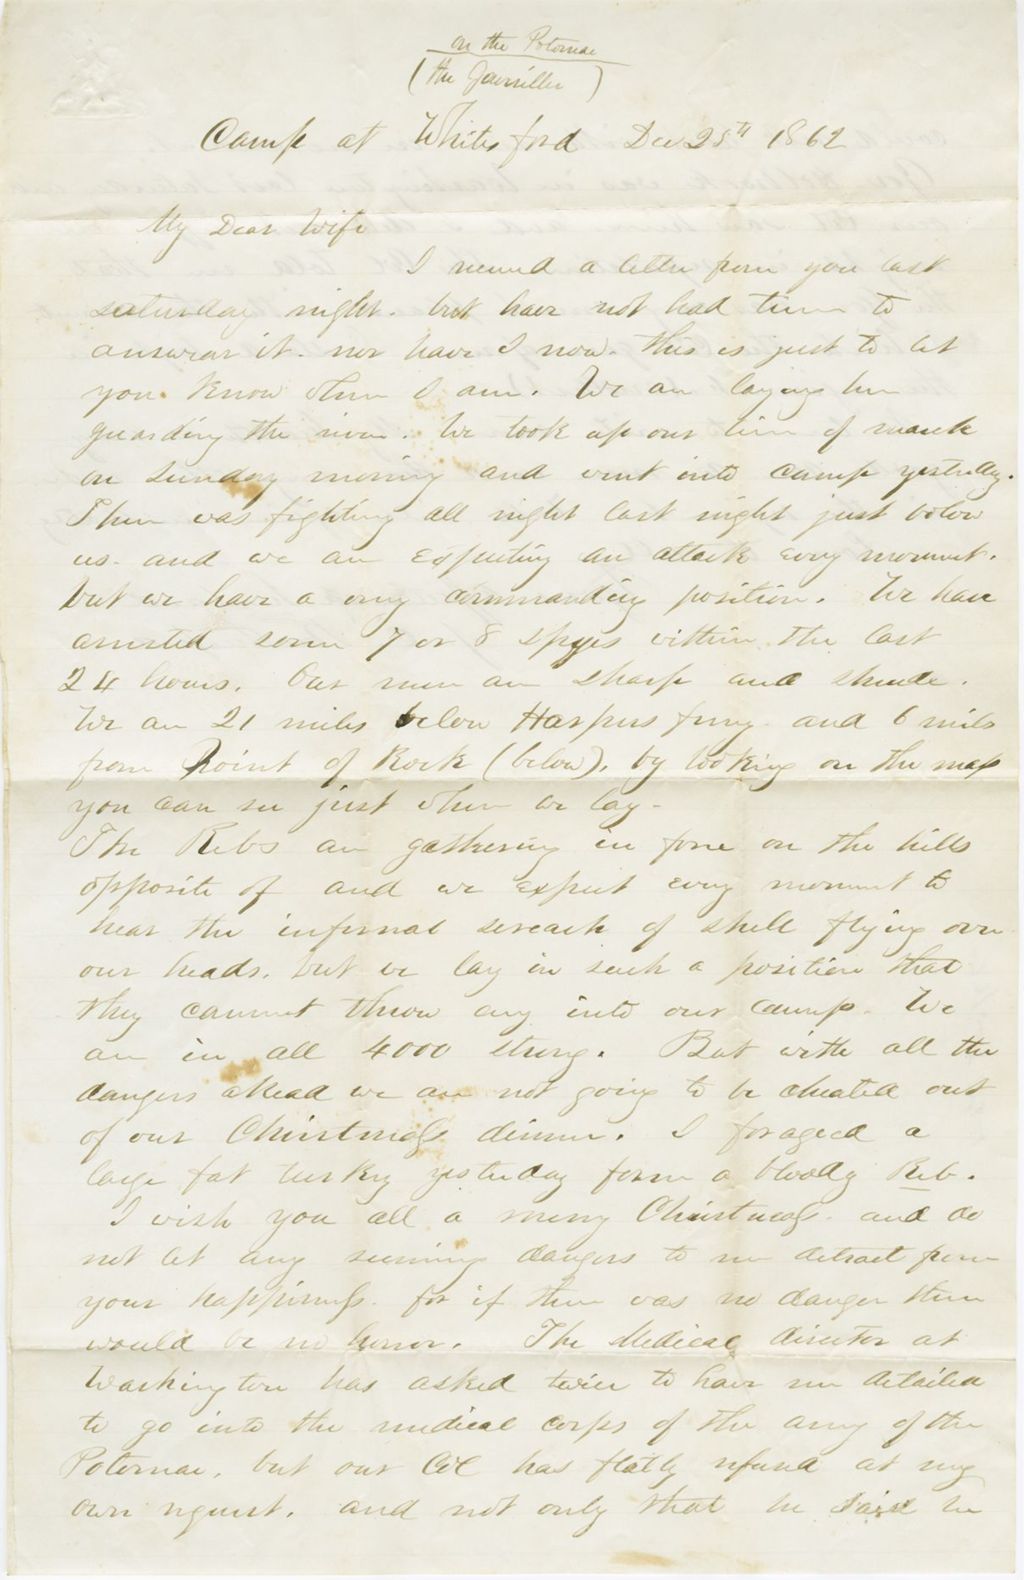 on the Potomac
(the
Camp at Whites ford Dec 25th 1862
My Dear Wife
I received a letter from you last
saturday night. but have not had time to
answear it. nor have I now. this is just to let
you know where I am. We are laying here
guarding the river. We took up our line of march
on Sunday morning and went into camp yesterday.
There was fighting all night last night just below
us. and we are expecting an attack every moment.
but we have a very commanding position. We have
arrested some 7 or 8 spyes within the last
24 hours. Our men are sharp and shrude.
We are 21 miles below Harpers ferry. and 6 miles
from Point of Rock (below). by looking on the map
you can see just where we lay -
The Rebs are gathering in force on the hills
opposite of and we expect every moment to
hear the infernal screach of shell flying over
our heads. but we lay in such a position that
they cannot throw any into our camp. We
are in all 4000 strong. But with all the
dangers ahead we are not going to be cheated out
of our Christmass dinner. I foraged a
large fat turkey yesterday from a bloody Reb.
I wish you all a merry Christmass. and do
not let any seeming dangers to me detract from
your happiness. for if there was no danger there
would be no honor. The Medical director at
Washington has asked twice to have me detailed
to go into the medical corps of the army of the
Potomac. but our Col has flatly refused at my
own request. and not only that he said he